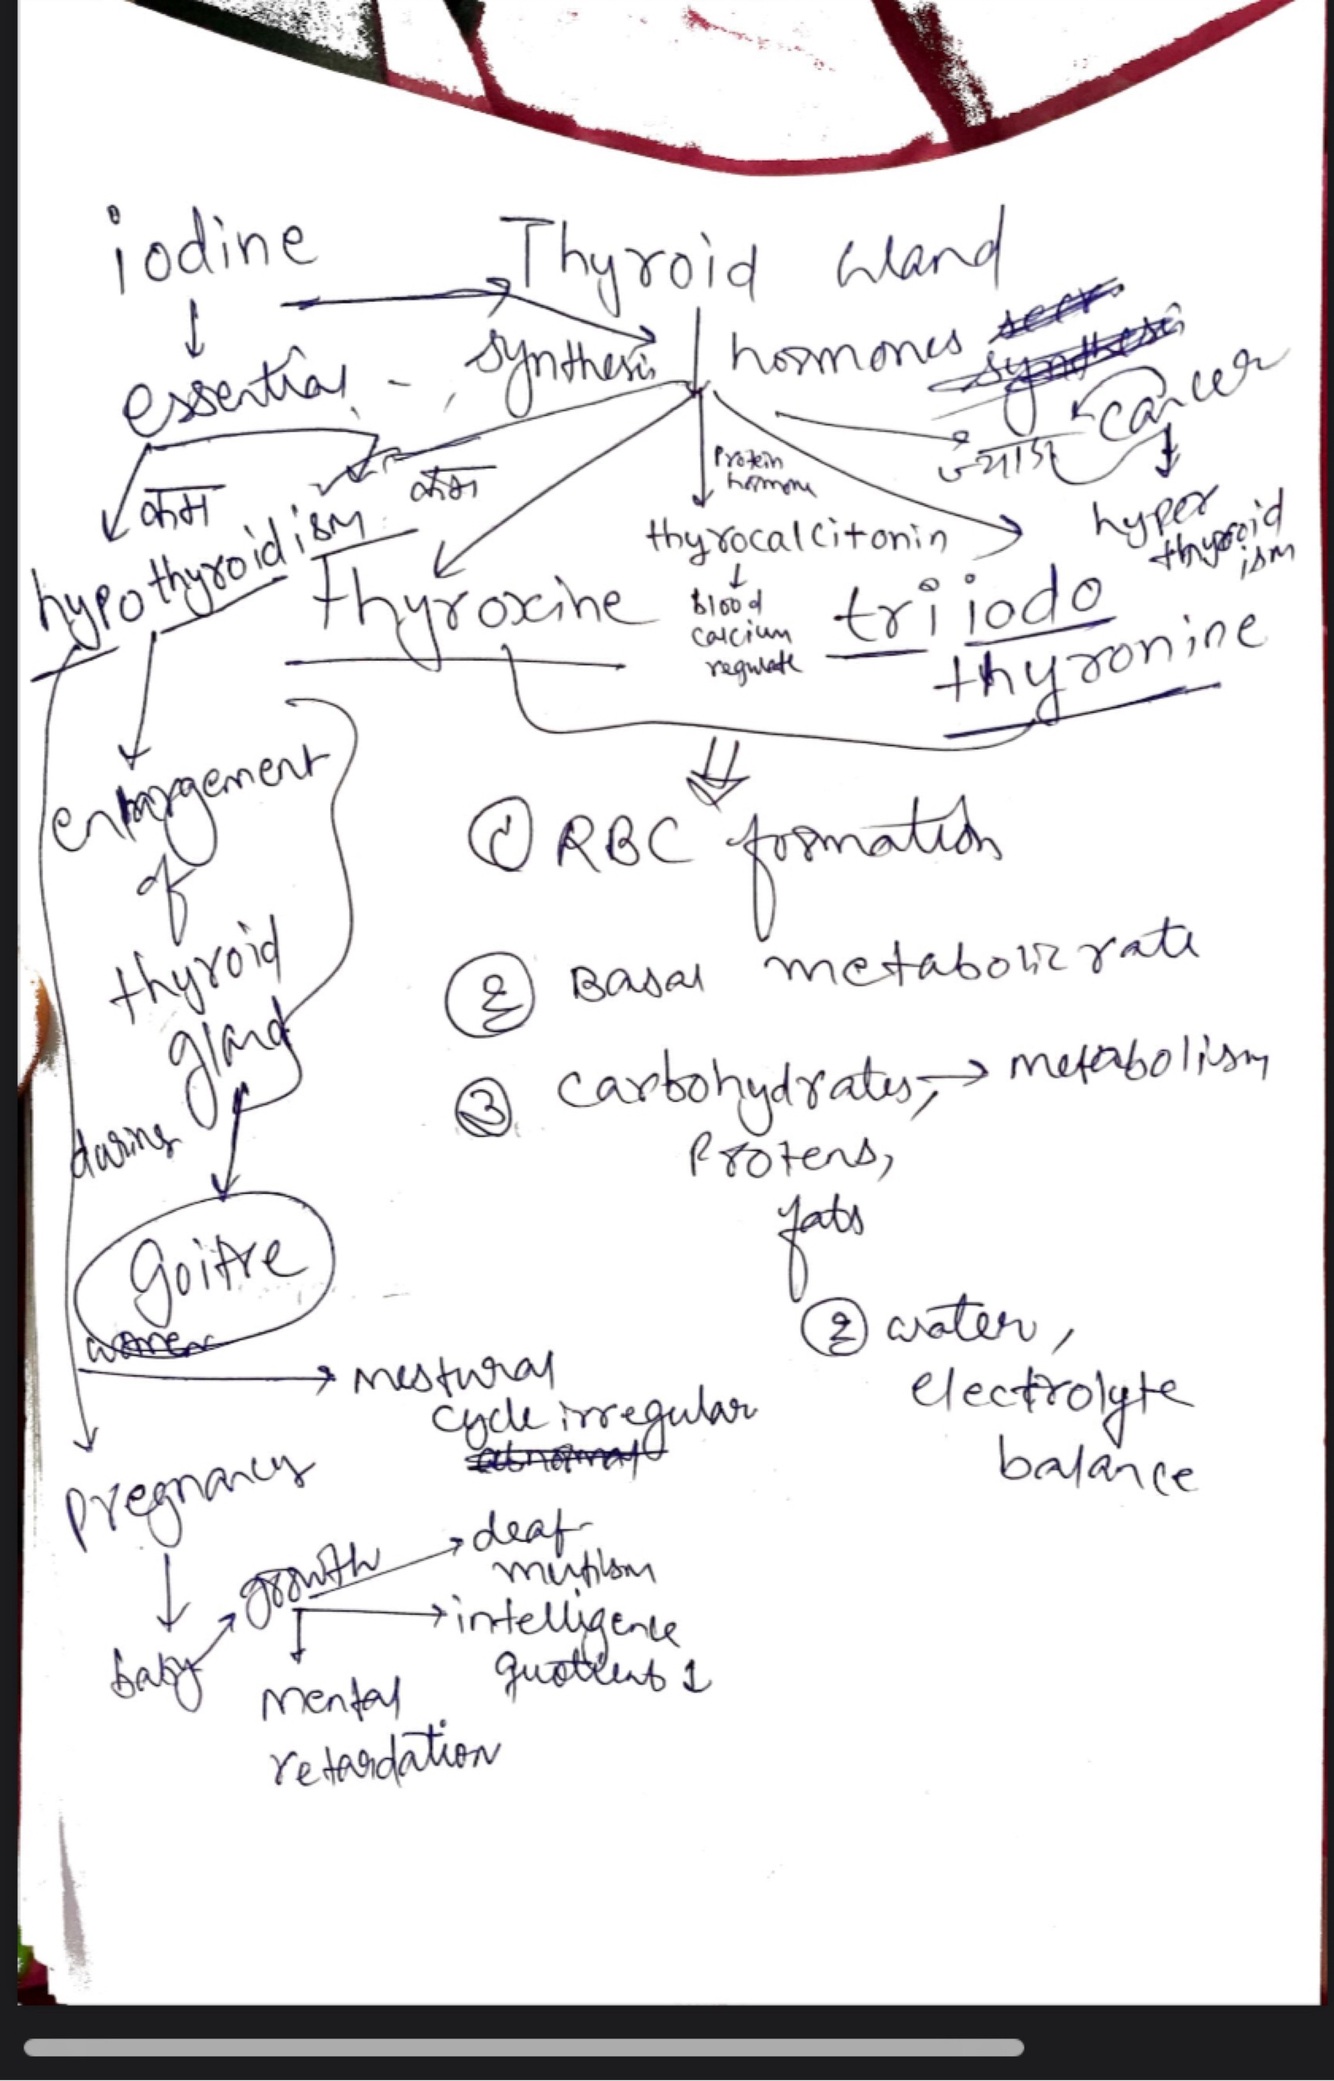 iodine
Thyroid Gland
essential
synthesis
hormones
cancer
कम
कम
ज्यादा
Protein
hormone
hypothyroidism
thyrocalcitonin
hyper
thyroid
ism
Thyroxine
Blood
calcium
regulate
triiodo
thyronine
enlargement
of
thyroid
gland
① RBC formation
② Basal metabolic rate
③ Carbohydrates, → metabolism
Protens,
fats
② water,
electrolyte
balance
during
Goitre
women
mestural
cycle irregular
abnormal
pregnancy
baby
growth
deaf-
mutism
intelligence
quotient ↓
Mental
retardation